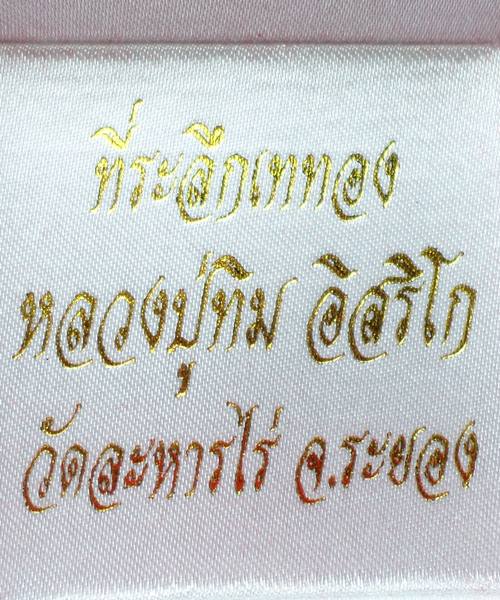 ที่ระลึกเททอง
หลวงปู่ทิม อิสริโก
วัดละหารไร่ จ.ระยอง